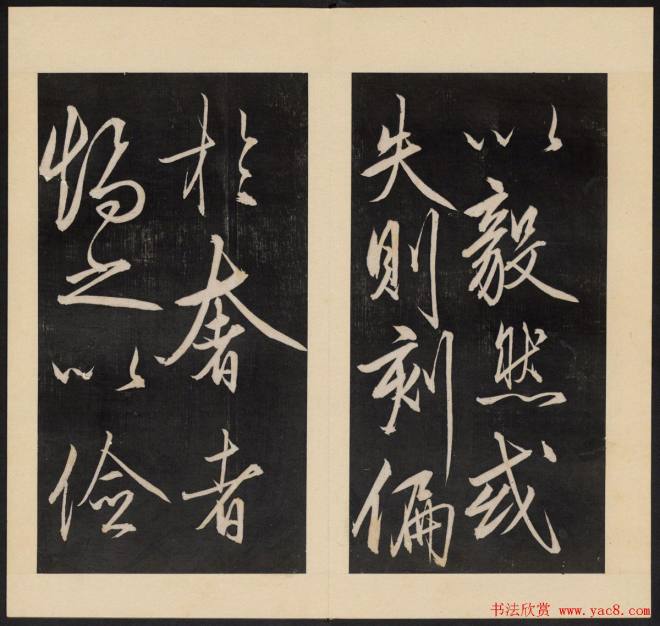 以毅然或
失則刻偏
於奢者
矯之以儉
书法欣赏 www.yac8.com